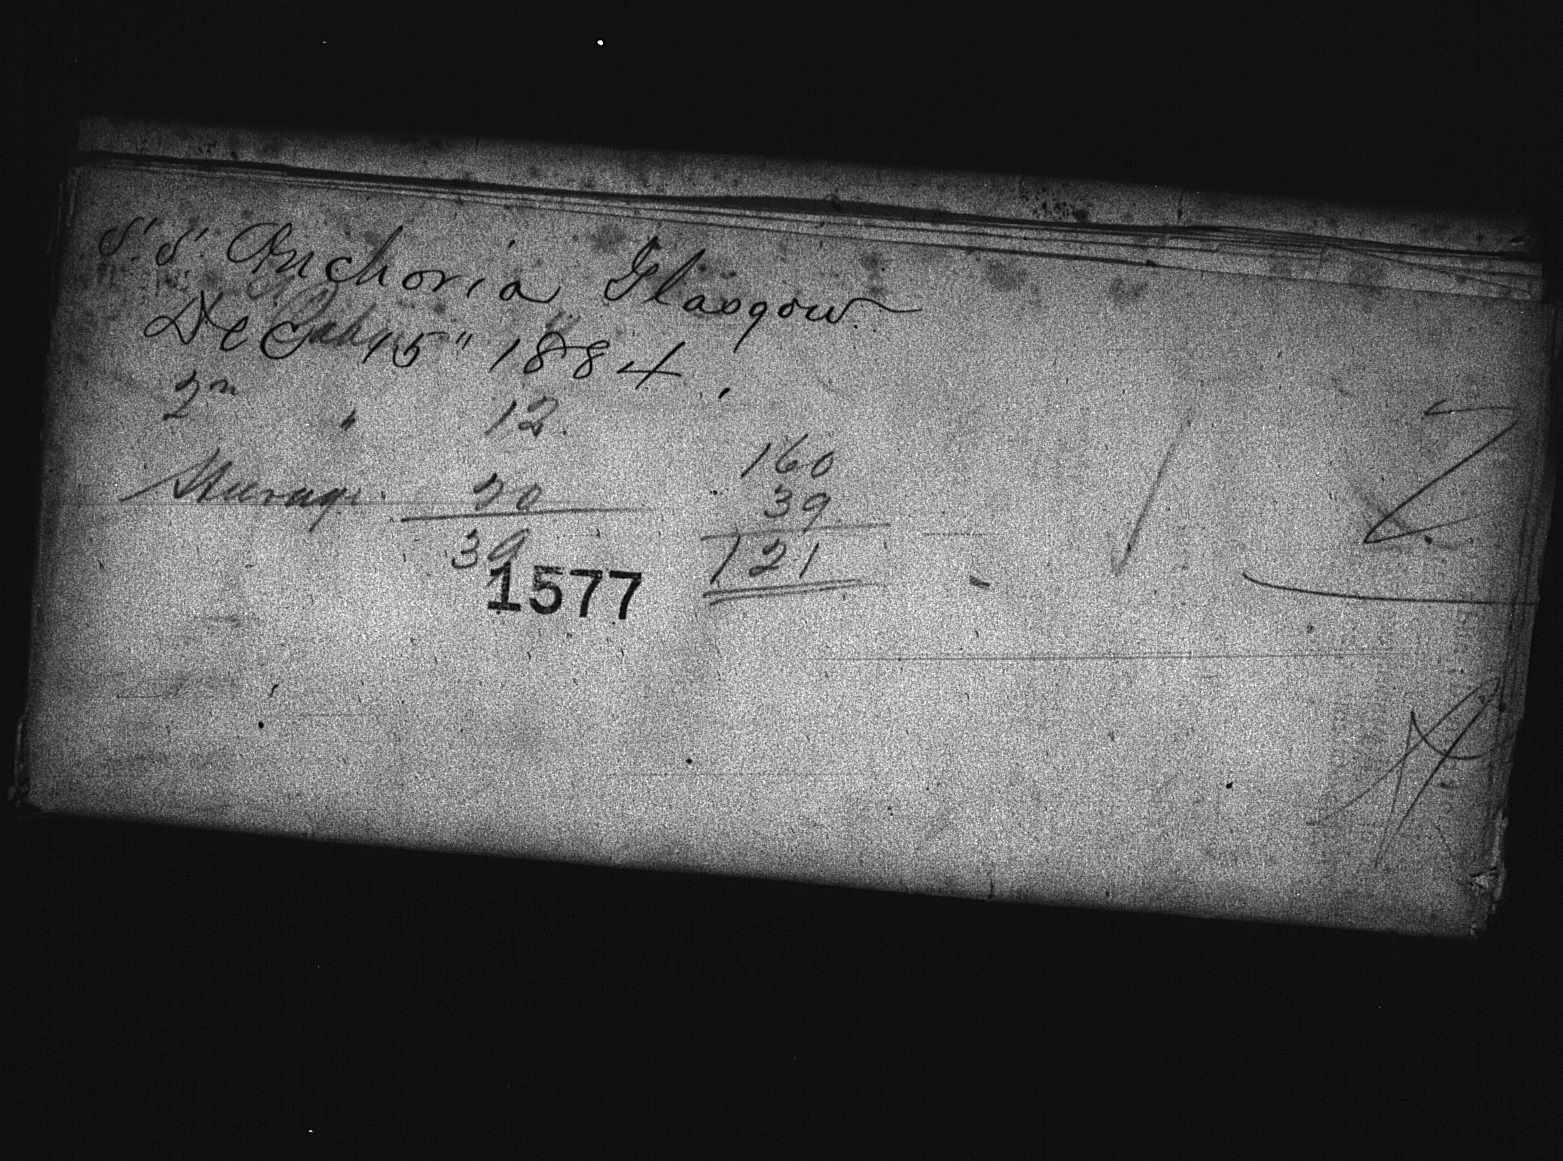 S.S. Anchoria Glasgow
Dec 15" 1884.
2n " 12.
Steerage. 20
39
160
39
121
1577